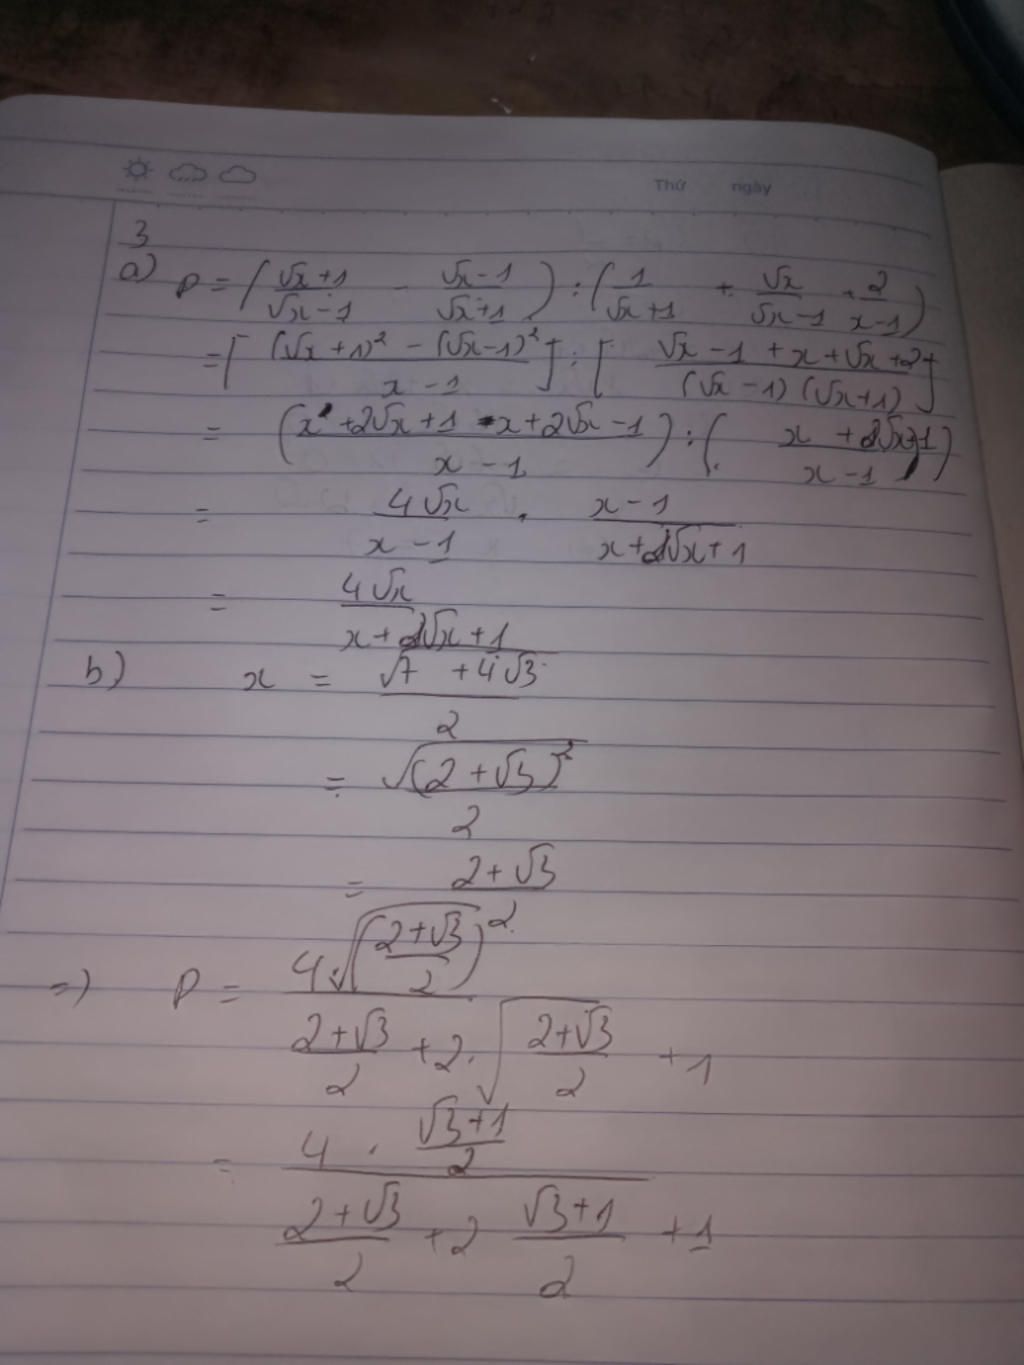 Thứ ngày
3
a) P = (√x+1/√x-1 - √x-1/√x+1) : (1/√x+1 + √x/√x-1 + 2/x-1)
= [(√x+1)² - (√x-1)²/x-1] : [√x-1+x+√x+2/(√x-1)(√x+1)]
= (x+2√x+1-x+2√x-1/x-1) : (x+2√x+1/x-1)
= 4√x/x-1 . x-1/x+2√x+1
= 4√x/x+2√x+1
b) x = √7+4√3/2
= √(2+√3)²/2
= 2+√3/2
=) P = 4.√(2+√3/2)²/2+√3/2 + 2.√2+√3/2 + 1
= 4 . √3+1/2/2+√3/2 + 2 √3+1/2 + 1